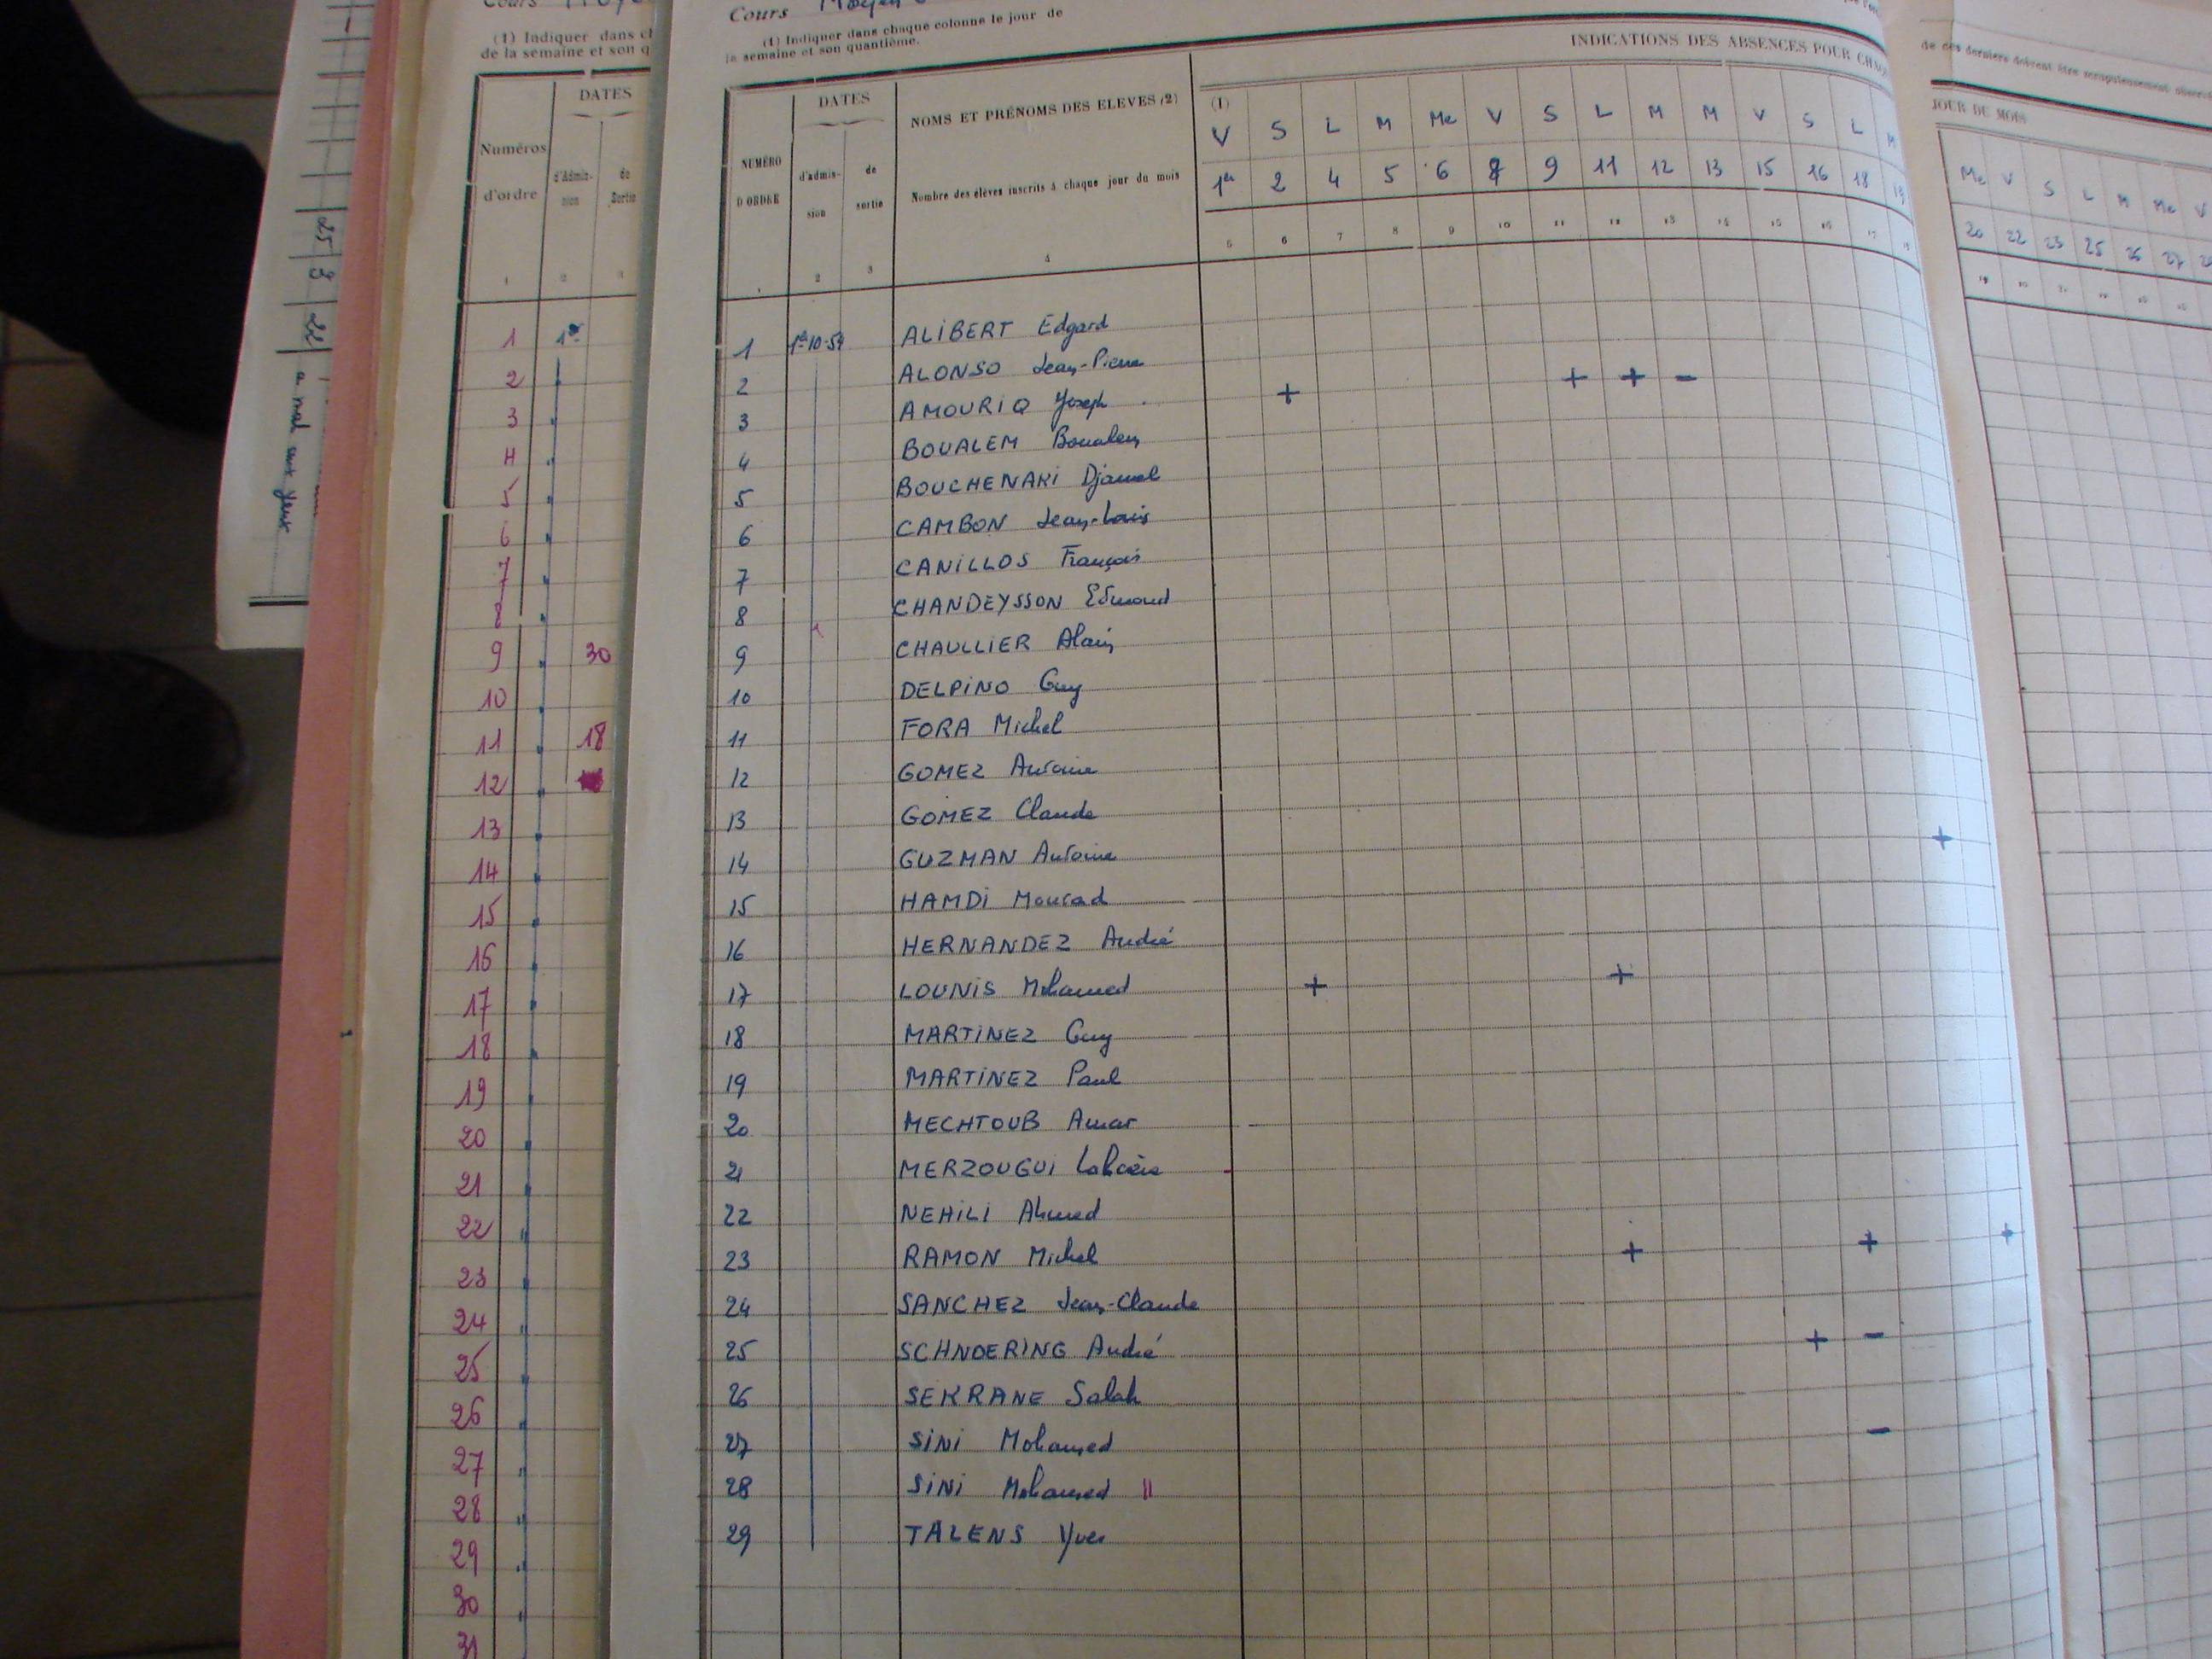 Cours Moyen
(1) Indiquer dans chaque colonne le jour de
la semaine et son quantième.
INDICATIONS DES ABSENCES POUR CHAQ
NUMÉRO D'ORDRE
DATES
d'admis-sion
de sortie
NOMS ET PRÉNOMS DES ELEVES (2)
Nombre des élèves inscrits à chaque jour du mois
(1)
V S L M Me V S L M M V S L M
1er 2 4 5 6 8 9 11 12 13 15 16 18 19
1 2 3 4 5 6 7 8 9 10 11 12 13 14 15 16 17 18
1 1er-10-54 ALIBERT Edgard
2 ALONSO Jean-Pierre + + -
3 AMOURIQ Joseph +
4 BOUALEM Boualem
5 BOUCHENAKI Djamel
6 CAMBON Jean-Louis
7 CANILLOS François
8 CHANDEYSSON Edmond
9 CHAULLIER Alain
10 DELPINO Guy
11 FORA Michel
12 GOMEZ Antoine
13 GOMEZ Claude
14 GUZMAN Antoine +
15 HAMDI Mourad
16 HERNANDEZ André
17 LOUNIS Mohamed + +
18 MARTINEZ Guy
19 MARTINEZ Paul
20 MECHTOUB Amar
21 MERZOUGUI
22 NEHILI Ahmed
23 RAMON Michel + + +
24 SANCHEZ Jean-Claude
25 SCHNOERING André + -
26 SEKRANE Salah
27 SINI Mohamed -
28 SINI Mohamed II
29 TALENS Yves
Cours Moye
(1) Indiquer dans ch
de la semaine et son q
DATES
Numéros
d'ordre
d'Admis-sion
de Sortie
1 2 3
1 1er
2
3
4
5
6
7
8
9 30
10
11 18
12
13
14
15
16
17
18
19
20
21
22
23
24
25
26
27
28
29
30
31
25 3 22
a mal aux yeux
de ces derniers doivent être scrupuleusement
JOUR DU MOIS
Me V S L M Me V
20 22 23 25 26 27